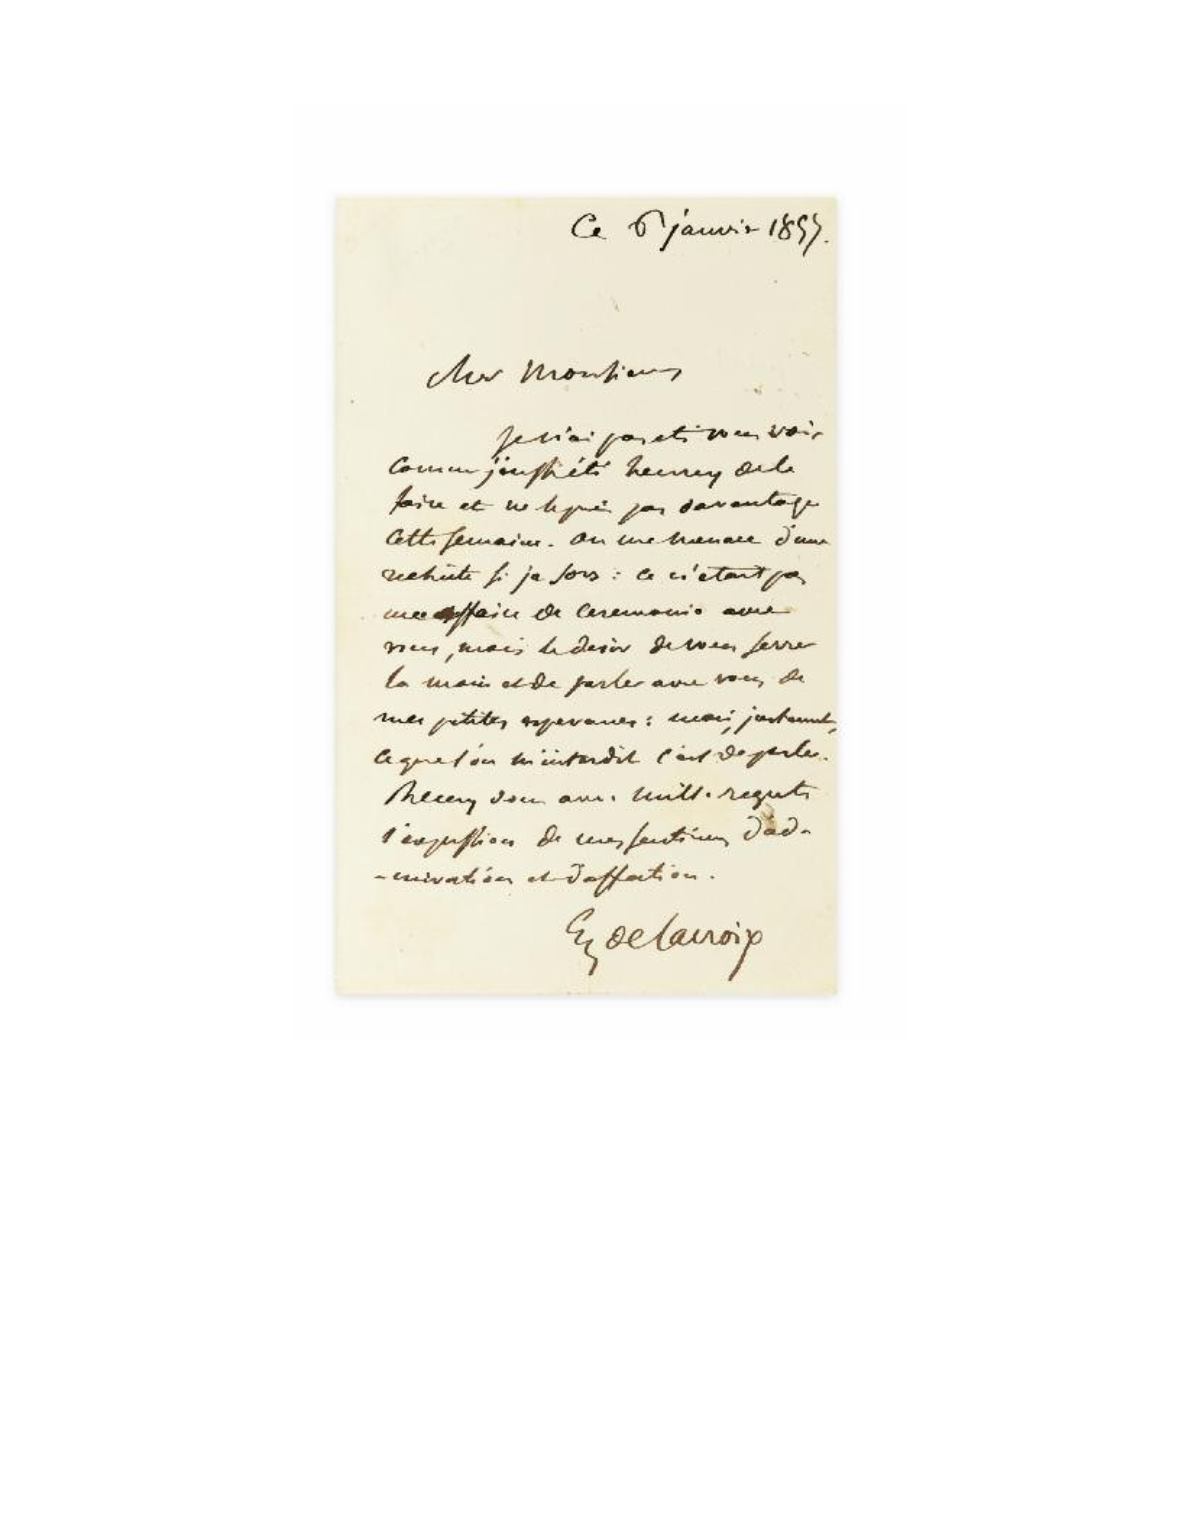 Ce 6 janvier 1857.
Cher Monsieur
Je n'ai pas été vous voir
comme j'eusse été heureux de le
faire et ne le puis pas davantage
cette semaine. On me menace d'une
rechute si je sors : ce n'était pas
une affaire de ceremonie avec
vous, mais le desir de vous serrer
la main et de parler avec vous de
mes petites esperances : mais, justement,
ce que l'on m'interdit c'est de parler.
Recevez donc avec mille regrets
l'expression de mes sentimens d'ad-
-miration et d'affection.
Eug Delacroix